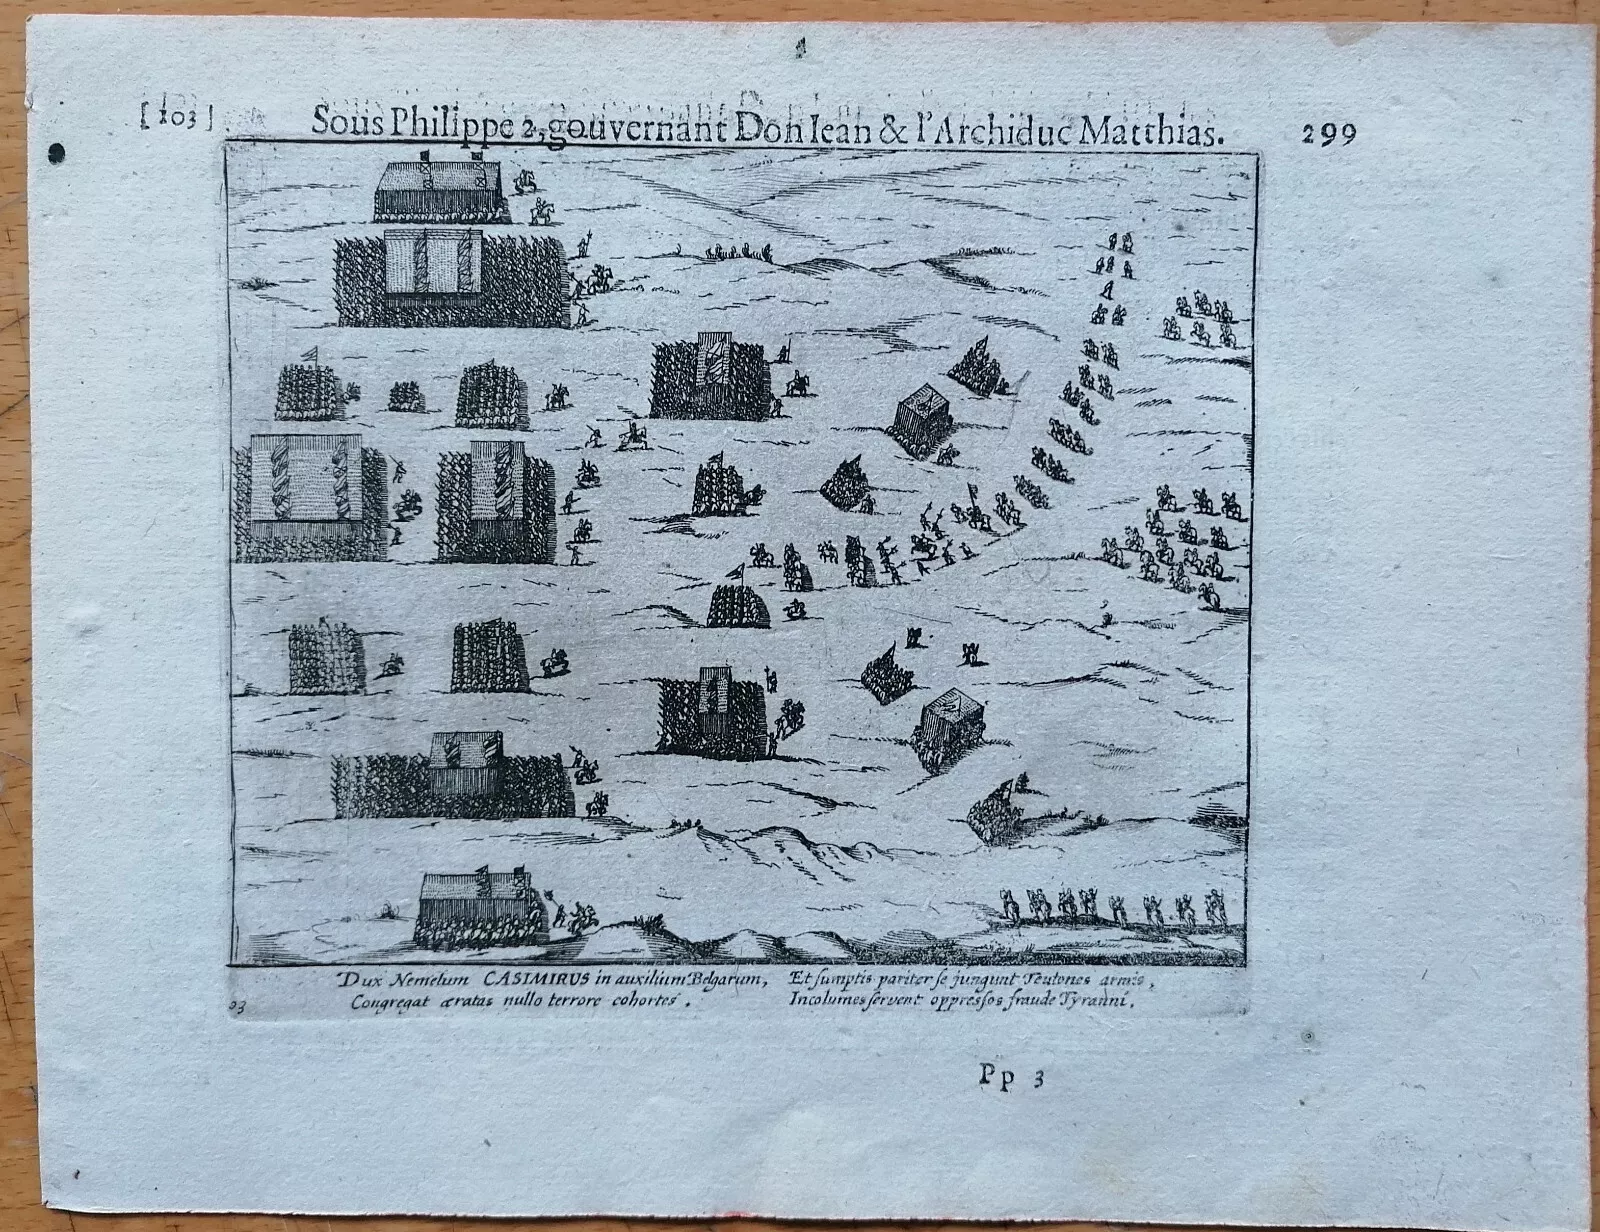 [103] Sous Philippe 2, gouvernant Don Iean & l'Archiduc Matthias. 299
Dux Nemetum CASIMIRUS in auxilium Belgarum,
Congregat æratas nullo terrore cohortes.
Et sumptis pariter se jungunt Teutones armis,
Incolumes servent oppressos fraude Tyranni.
03
Pp 3